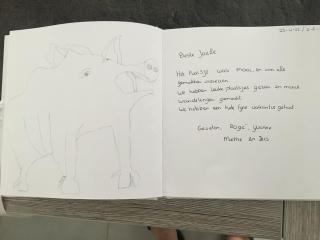 Beste Joëlle
Het huisje was mooi, en van alle
gemakken voorzien.
We hebben leuke plaatsjes gezien en mooie
wandelingen gemaakt.
We hebben een hele fijne vakantie gehad
Groeten, Rogé, Yvonne
Mette en Iris